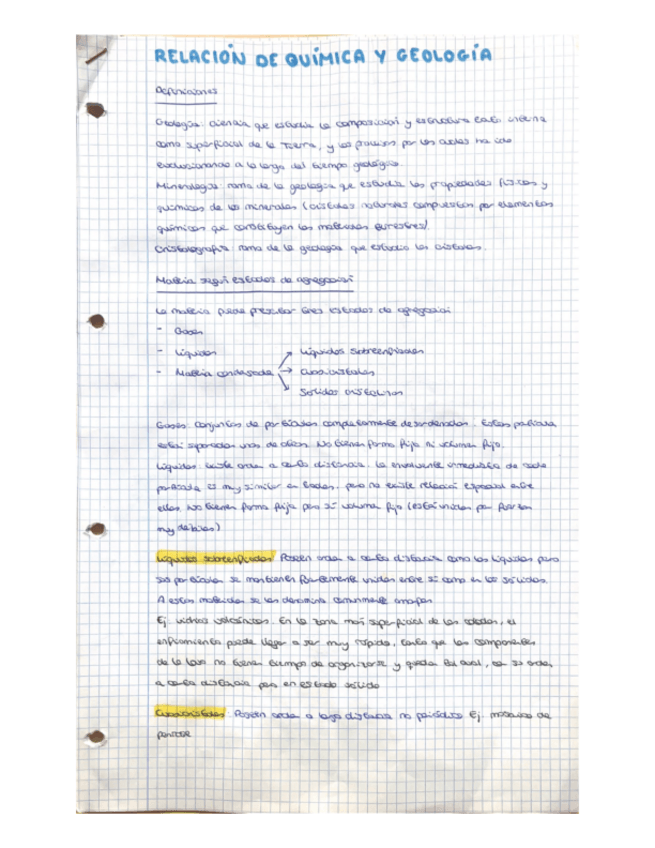 RELACIÓN DE QUÍMICA Y GEOLOGÍA
Definiciones
Geología: ciencia que estudia la composición y estructura tanto interna
como superficial de la Tierra, y los procesos por los cuales ha ido
evolucionando a lo largo del tiempo geológico.
Mineralogía: rama de la geología que estudia las propiedades físicas y
químicas de los minerales (cristales naturales compuestos por elementos
químicos que constituyen los materiales terrestres).
Cristalografía: rama de la geología que estudia los cristales.
Materia según estados de agregación
La materia puede presentar tres estados de agregación:
- Gases
- Líquidos
- Materia condensada → Líquidos sobreenfriados
→ Cuasicristales
→ Sólidos cristalinos
Gases: conjuntos de partículas completamente desordenadas. Estas partículas
están separadas unas de otras. No tienen forma fija ni volumen fijo.
Líquidos: existe orden a corta distancia. La envolvente inmediata de cada
partícula es muy similar en todas, pero no existe relación espacial entre
ellas. No tienen forma fija pero sí volumen fijo (están unidas por fuerzas
muy débiles)
Líquidos sobreenfriados: Poseen orden a corta distancia como los líquidos pero
sus partículas se mantienen fuertemente unidas entre sí como en los sólidos.
A estos materiales se les denomina comúnmente amorfos
Ej. vidrios volcánicos. En la zona más superficial de las coladas, el
enfriamiento puede llegar a ser muy rápido, tanto que los componentes
de la lava no tienen tiempo de organizarse y queda tal cual, con su orden
a corta distancia pero en estado sólido
Cuasicristales: Poseen orden a larga distancia no periódico Ej mosaico de
penrose